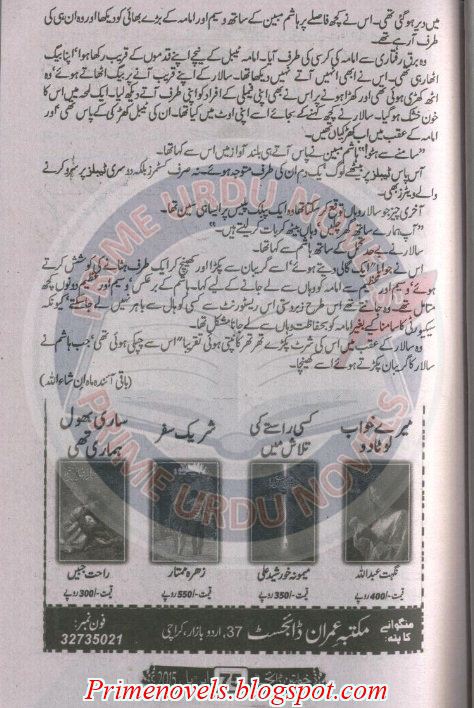 میں دیر ہو گئی تھی۔ اس نے کچھ فاصلے پر ہاشم مبین کے ساتھ وسیم اور امامہ کے بڑے بھائی کو دیکھا اور وہ ان ہی کی
طرف آ رہے تھے۔
وہ برق رفتاری سے امامہ کی کرسی کی طرف آیا۔ امامہ ٹیبل کے نیچے اپنے قدموں کے قریب رکھا ہوا اپنا بیگ
اٹھا رہی تھی۔ اس نے ابھی انہیں آتے نہیں دیکھا تھا۔ سالار کے اپنے قریب آنے پر بیگ اٹھاتے ہوئے وہ
اٹھ کھڑی ہوئی تھی اور کھڑا ہونے پر اس نے بھی اپنی فیملی کے افراد کو اپنی طرف آتے دیکھ لیا۔ ایک لمحہ میں اس کا
خون خشک ہو گیا۔ سالار نے کچھ کہنے کے بجائے اسے اپنی اوٹ میں کیا تھا۔ ان کی ٹیبل کھڑکی کے پاس تھی اور
امامہ کے عقب میں اب کھڑکیاں تھیں۔
"سامنے سے ہٹو!" ہاشم مبین نے پاس آتے ہی بلند آواز میں اس سے کہا تھا۔
آس پاس ٹیبلز پر بیٹھے لوگ یک دم ان کی طرف متوجہ ہوئے۔ نہ صرف کسٹمرز بلکہ دوسری ٹیبلز پر سرو کرنے
والے ویٹرز بھی۔
آخری چیز جو سالار وہاں توقع کر سکتا تھا وہ ایک پبلک پلیس پر ایسا ہی سین تھا۔
"آپ ہمارے ساتھ گھر چلیں وہاں بیٹھ کر بات کر لیتے ہیں۔"
سالار نے بے حد تحمل کے ساتھ ہاشم سے کہا تھا۔
اس نے جواباً "ایک گالی دیتے ہوئے اسے گریبان سے پکڑا اور کھینچ کر ایک طرف ہٹانے کی کوشش کرتے
ہوئے وسیم اور عظیم سے امامہ کو وہاں سے لے جانے کے لیے کہا۔ ہاشم کے برعکس وسیم اور عظیم دونوں کچھ
متامل تھے۔ وہ جانتے تھے اس طرح زبردستی اس ریسٹورنٹ سے کسی کو وہاں سے باہر نہیں لے جا سکتے کیونکہ
سیکیورٹی کا سامنا کیے بغیر امامہ کو بحفاظت وہاں سے لے جانا مشکل تھا۔
وہ سالار کے عقب میں اس کی شرٹ پکڑے تھر تھر کانپتی ہوئی تقریباً اس سے چپکی ہوئی تھی جب ہاشم نے
سالار کا گریبان پکڑتے ہوئے اسے کھینچا۔
(باقی آئندہ ماہ ان شاء اللہ)
میرے خواب لوٹا دو
نگہت عبداللہ
قیمت -/400 روپے
کسی راستے کی تلاش میں
میمونہ خورشید علی
قیمت -/350 روپے
شریک سفر
زہرہ ممتاز
قیمت -/550 روپے
ساری بھول ہماری تھی
راحت جبیں
قیمت -/300 روپے
منگوانے کا پتہ: مکتبہ عمران ڈائجسٹ 37, اردو بازار، کراچی
فون نمبر: 32735021
75
2015
PRIME URDU NOVELS
PRIME URDU NOVELS
Primenovels.blogspot.com